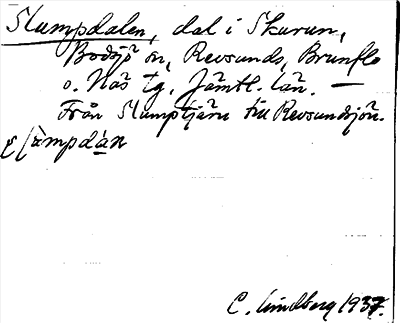 Slumpdalen, dal i Skurun,
Bodsjö sn, Revsunds, Brunflo
o. Näs tg. Jämtl. län. —
Från Slumptjärn till Revsundsjön.
C. Lindberg 1937.